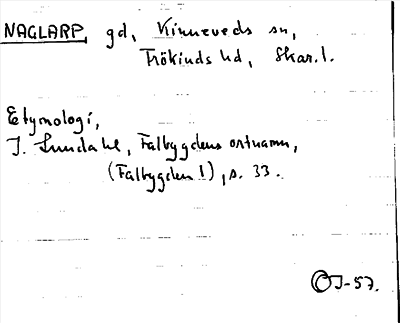 NAGLARP, gd, Kinneveds sn,
Frökinds hd, Skar. l.
Etymologi,
I. Lundahl, Falbygdens ortnamn,
(Falbygden 1), s. 33.
OJ-57.